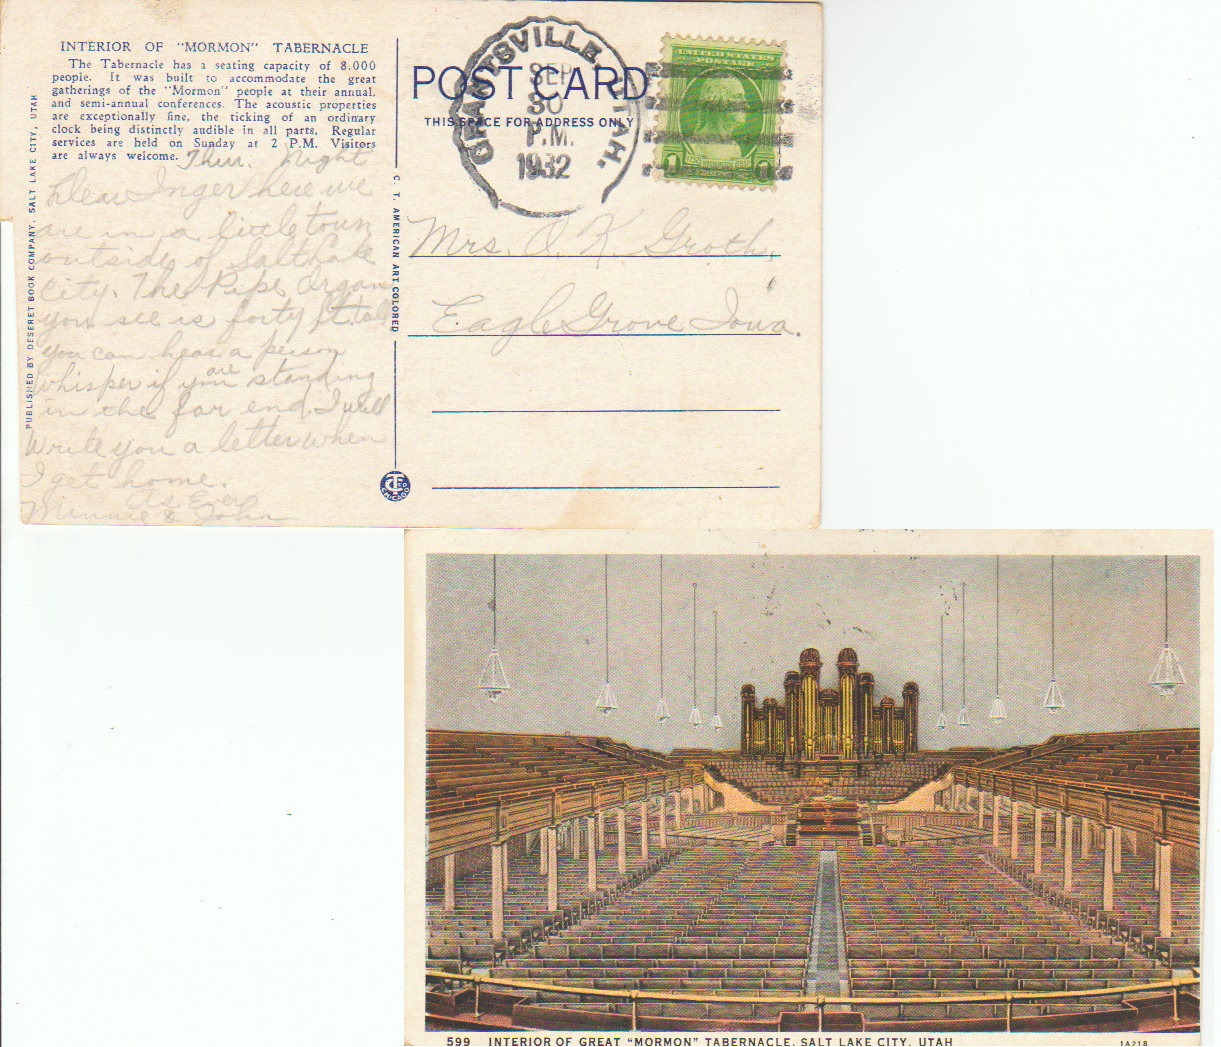 INTERIOR OF "MORMON" TABERNACLE
The Tabernacle has a seating capacity of 8,000
people. It was built to accommodate the great
gatherings of the "Mormon" people at their annual,
and semi-annual conferences. The acoustic properties
are exceptionally fine, the ticking of an ordinary
clock being distinctly audible in all parts. Regular
services are held on Sunday at 2 P.M. Visitors
are always welcome.
Thur. Night
Dear Inger here we
are in a little town
outside of Salt Lake
City. The Pipe Organ
you see is forty ft. tall
you can hear a person
whisper if your are standing
in the far end. I will
Write you a letter when
I get home.
As Ever
Minnie & John
PUBLISHED BY DESERET BOOK COMPANY, SALT LAKE CITY, UTAH
C. T. AMERICAN ART COLORED
POST CARD
THIS SPACE FOR ADDRESS ONLY
GRANTSVILLE, UTAH.
SEP
30
P.M.
1932
UNITED STATES
POSTAGE
1732 WASHINGTON 1932
1
Mrs. O. K. Groth,
Eagle Grove Iowa.
CHICAGO
599 INTERIOR OF GREAT "MORMON" TABERNACLE, SALT LAKE CITY, UTAH
1A218